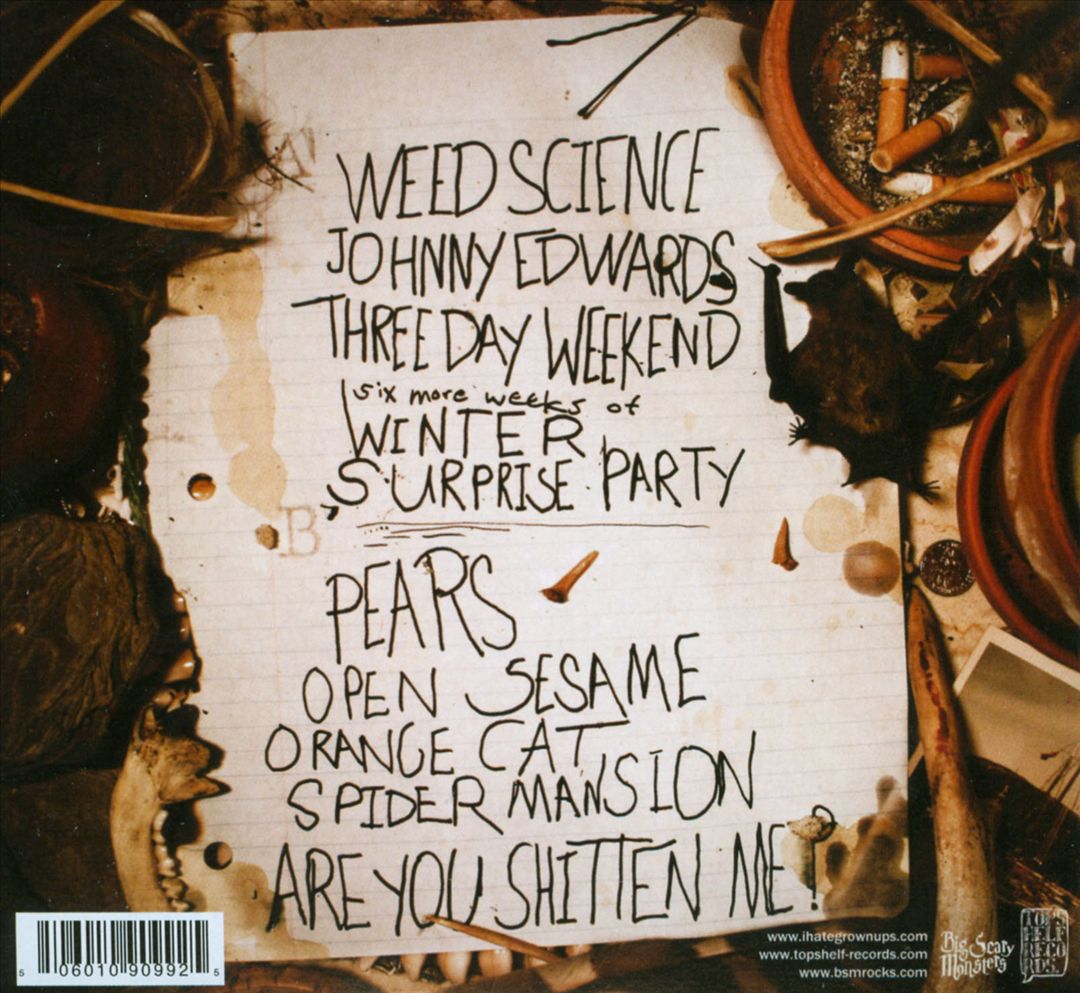 A
WEED SCIENCE
JOHNNY EDWARDS
THREE DAY WEEKEND
six more weeks of
WINTER
SURPRISE PARTY
B
PEARS
OPEN SESAME
ORANGE CAT
SPIDER MANSION
ARE YOU SHITTEN ME?
www.ihategrownups.com
www.topshelf-records.com
www.bsmrocks.com
Big Scary
Monsters
TOPS
HELF
RECO
RDS.
5 06010 90992 5